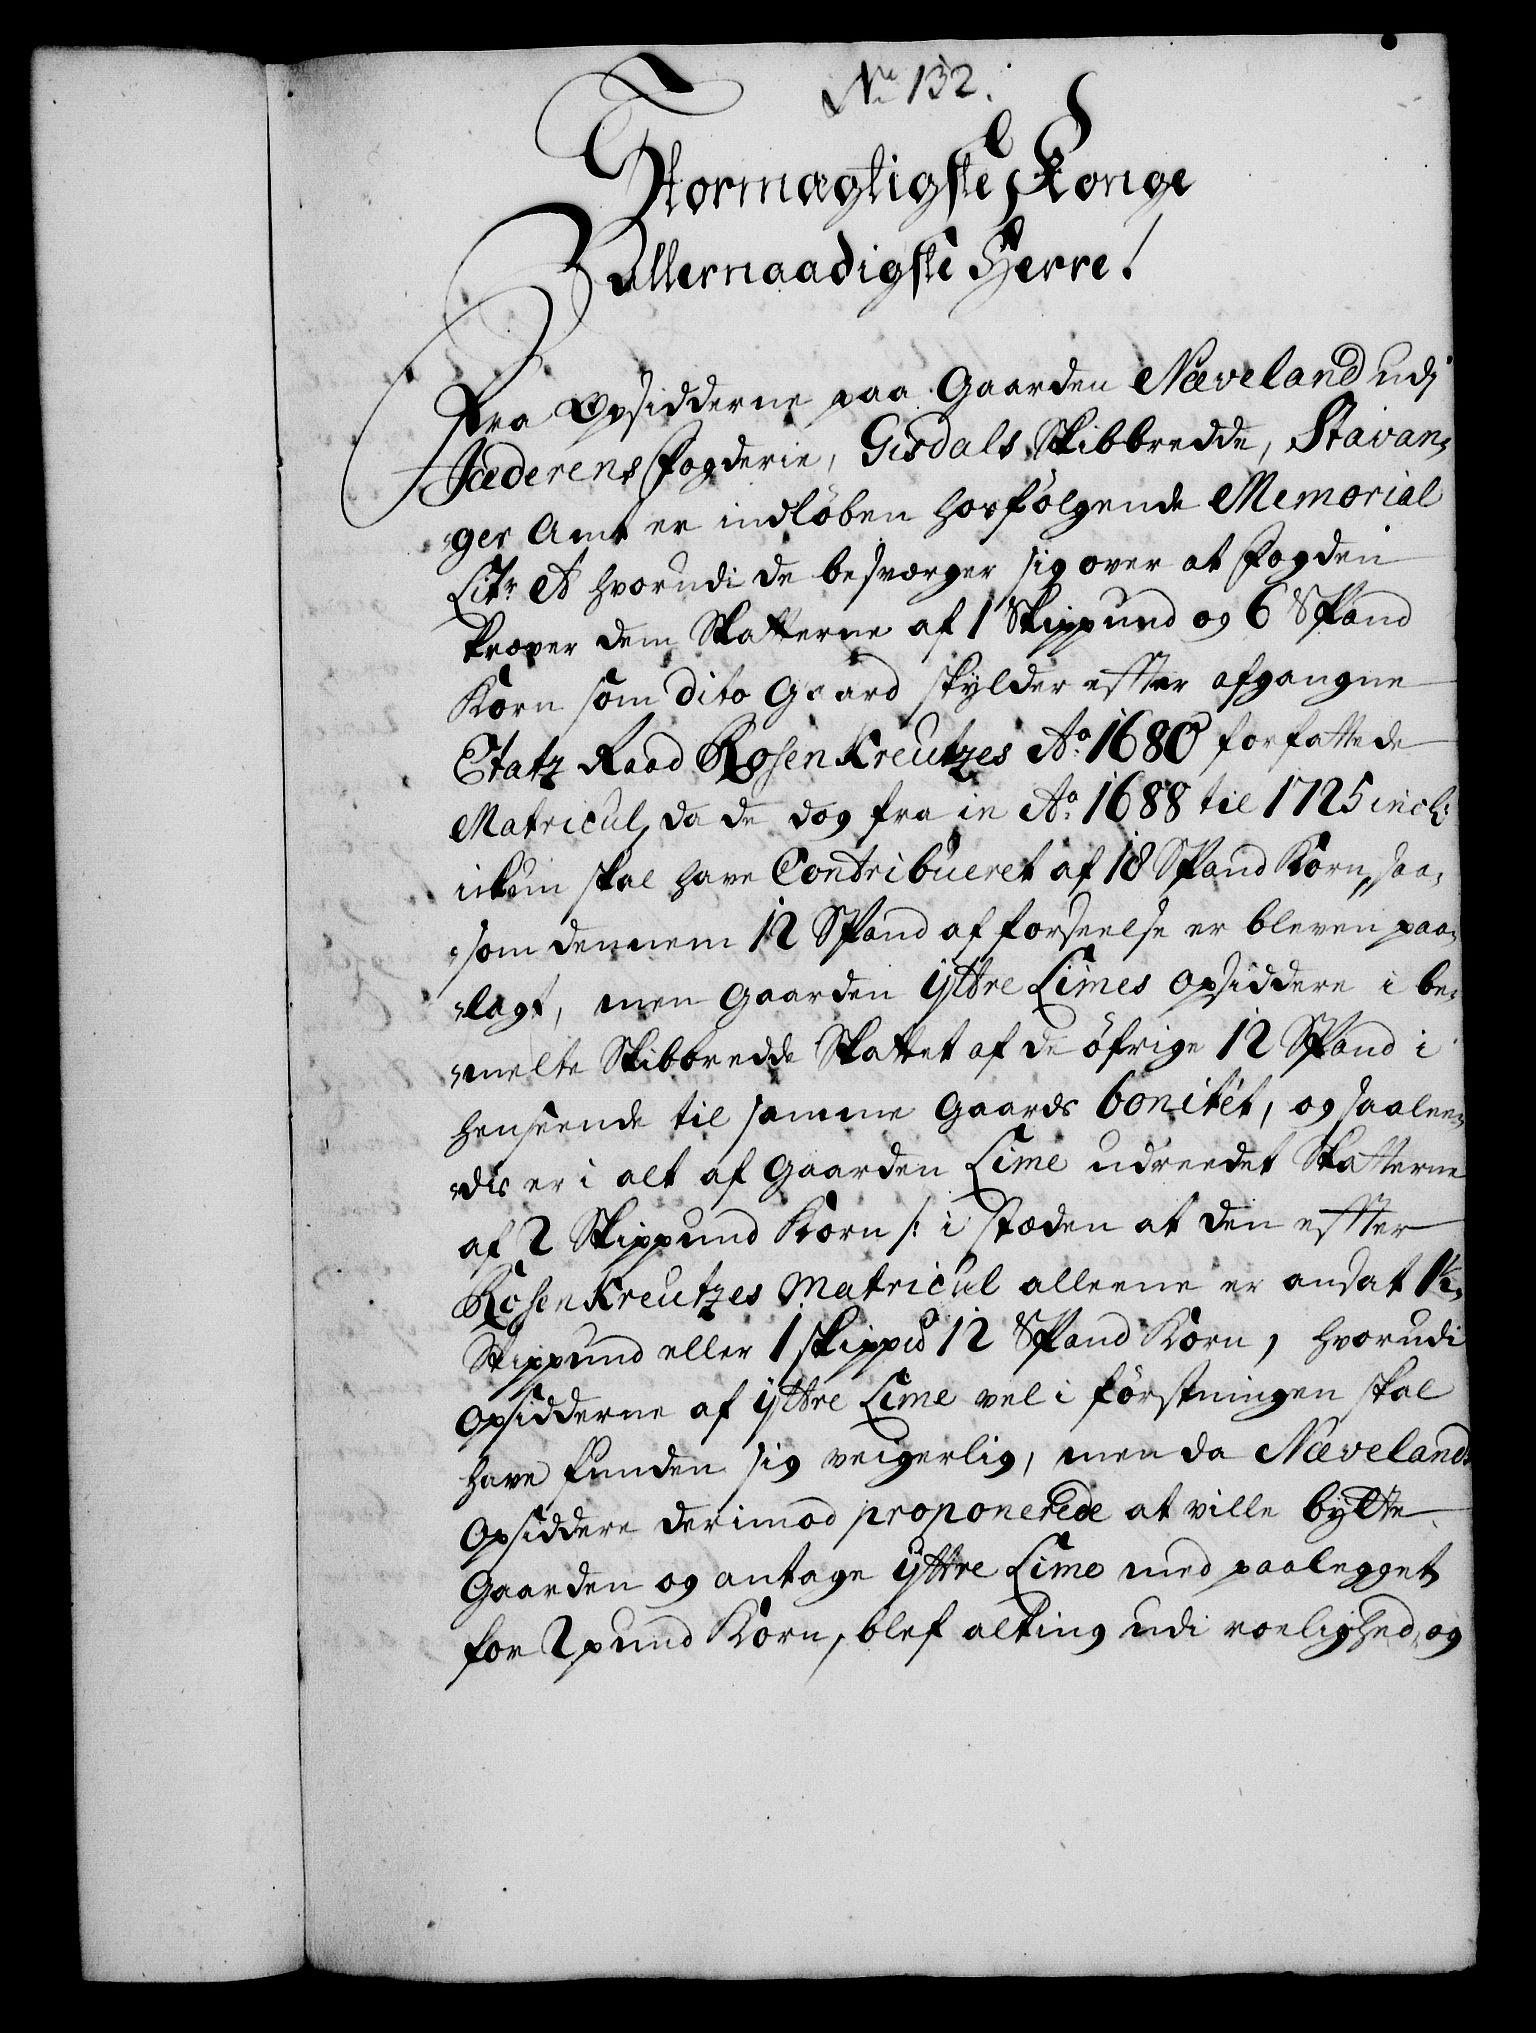 No 132.
Stormægtigste Konge
Allernaadigste Herre!
Fra Opsidderne paa Gaarden Næveland udj
Jæderens Fogderie, Gisdals Skibbredde, Stavan,
ger Amt er indløben hosfølgende Memorial
Litr A hvorudi de besværger sig over at Fogden
kræver dem Skatterne af 1 Skippund og 6 Spand
Korn som dito Gaard skylder effter afgangne
Etatz Raad Rosenkreutzes Ao 1680 forfattede
Matricul, da de dog fra in Ao 1688 til 1725 incl:
ickun skal have Contribueret af 18 Spand Korn, saa,
som dennem 12 Spand af forseelse er bleven paa,
lagt, men Gaarden Yttre Limes Opsiddere i be,
melte Skibbredde Skattet af de øfrige 12 Spand i
henseende til samme Gaards bonitet, og saalee,
dis er i alt af Gaarden Lime udreedet Skatterne
af 2 Skippund Korn /: i stæden at den effter
Rosenkreutzes Matricul alleene er ansat 1½
Skippund eller 1 skippd 12 Spand Korn, hvorudi
Opsidderne af Yttre Lime vel i førstningen skal
have funden sig veigerlig, men da Nævelands
Opsiddere derimod proponerede at ville bytte
Gaarden og antage Yttre Lime med paalegget
for 2 pund Korn, blef alting udi roelighed, og